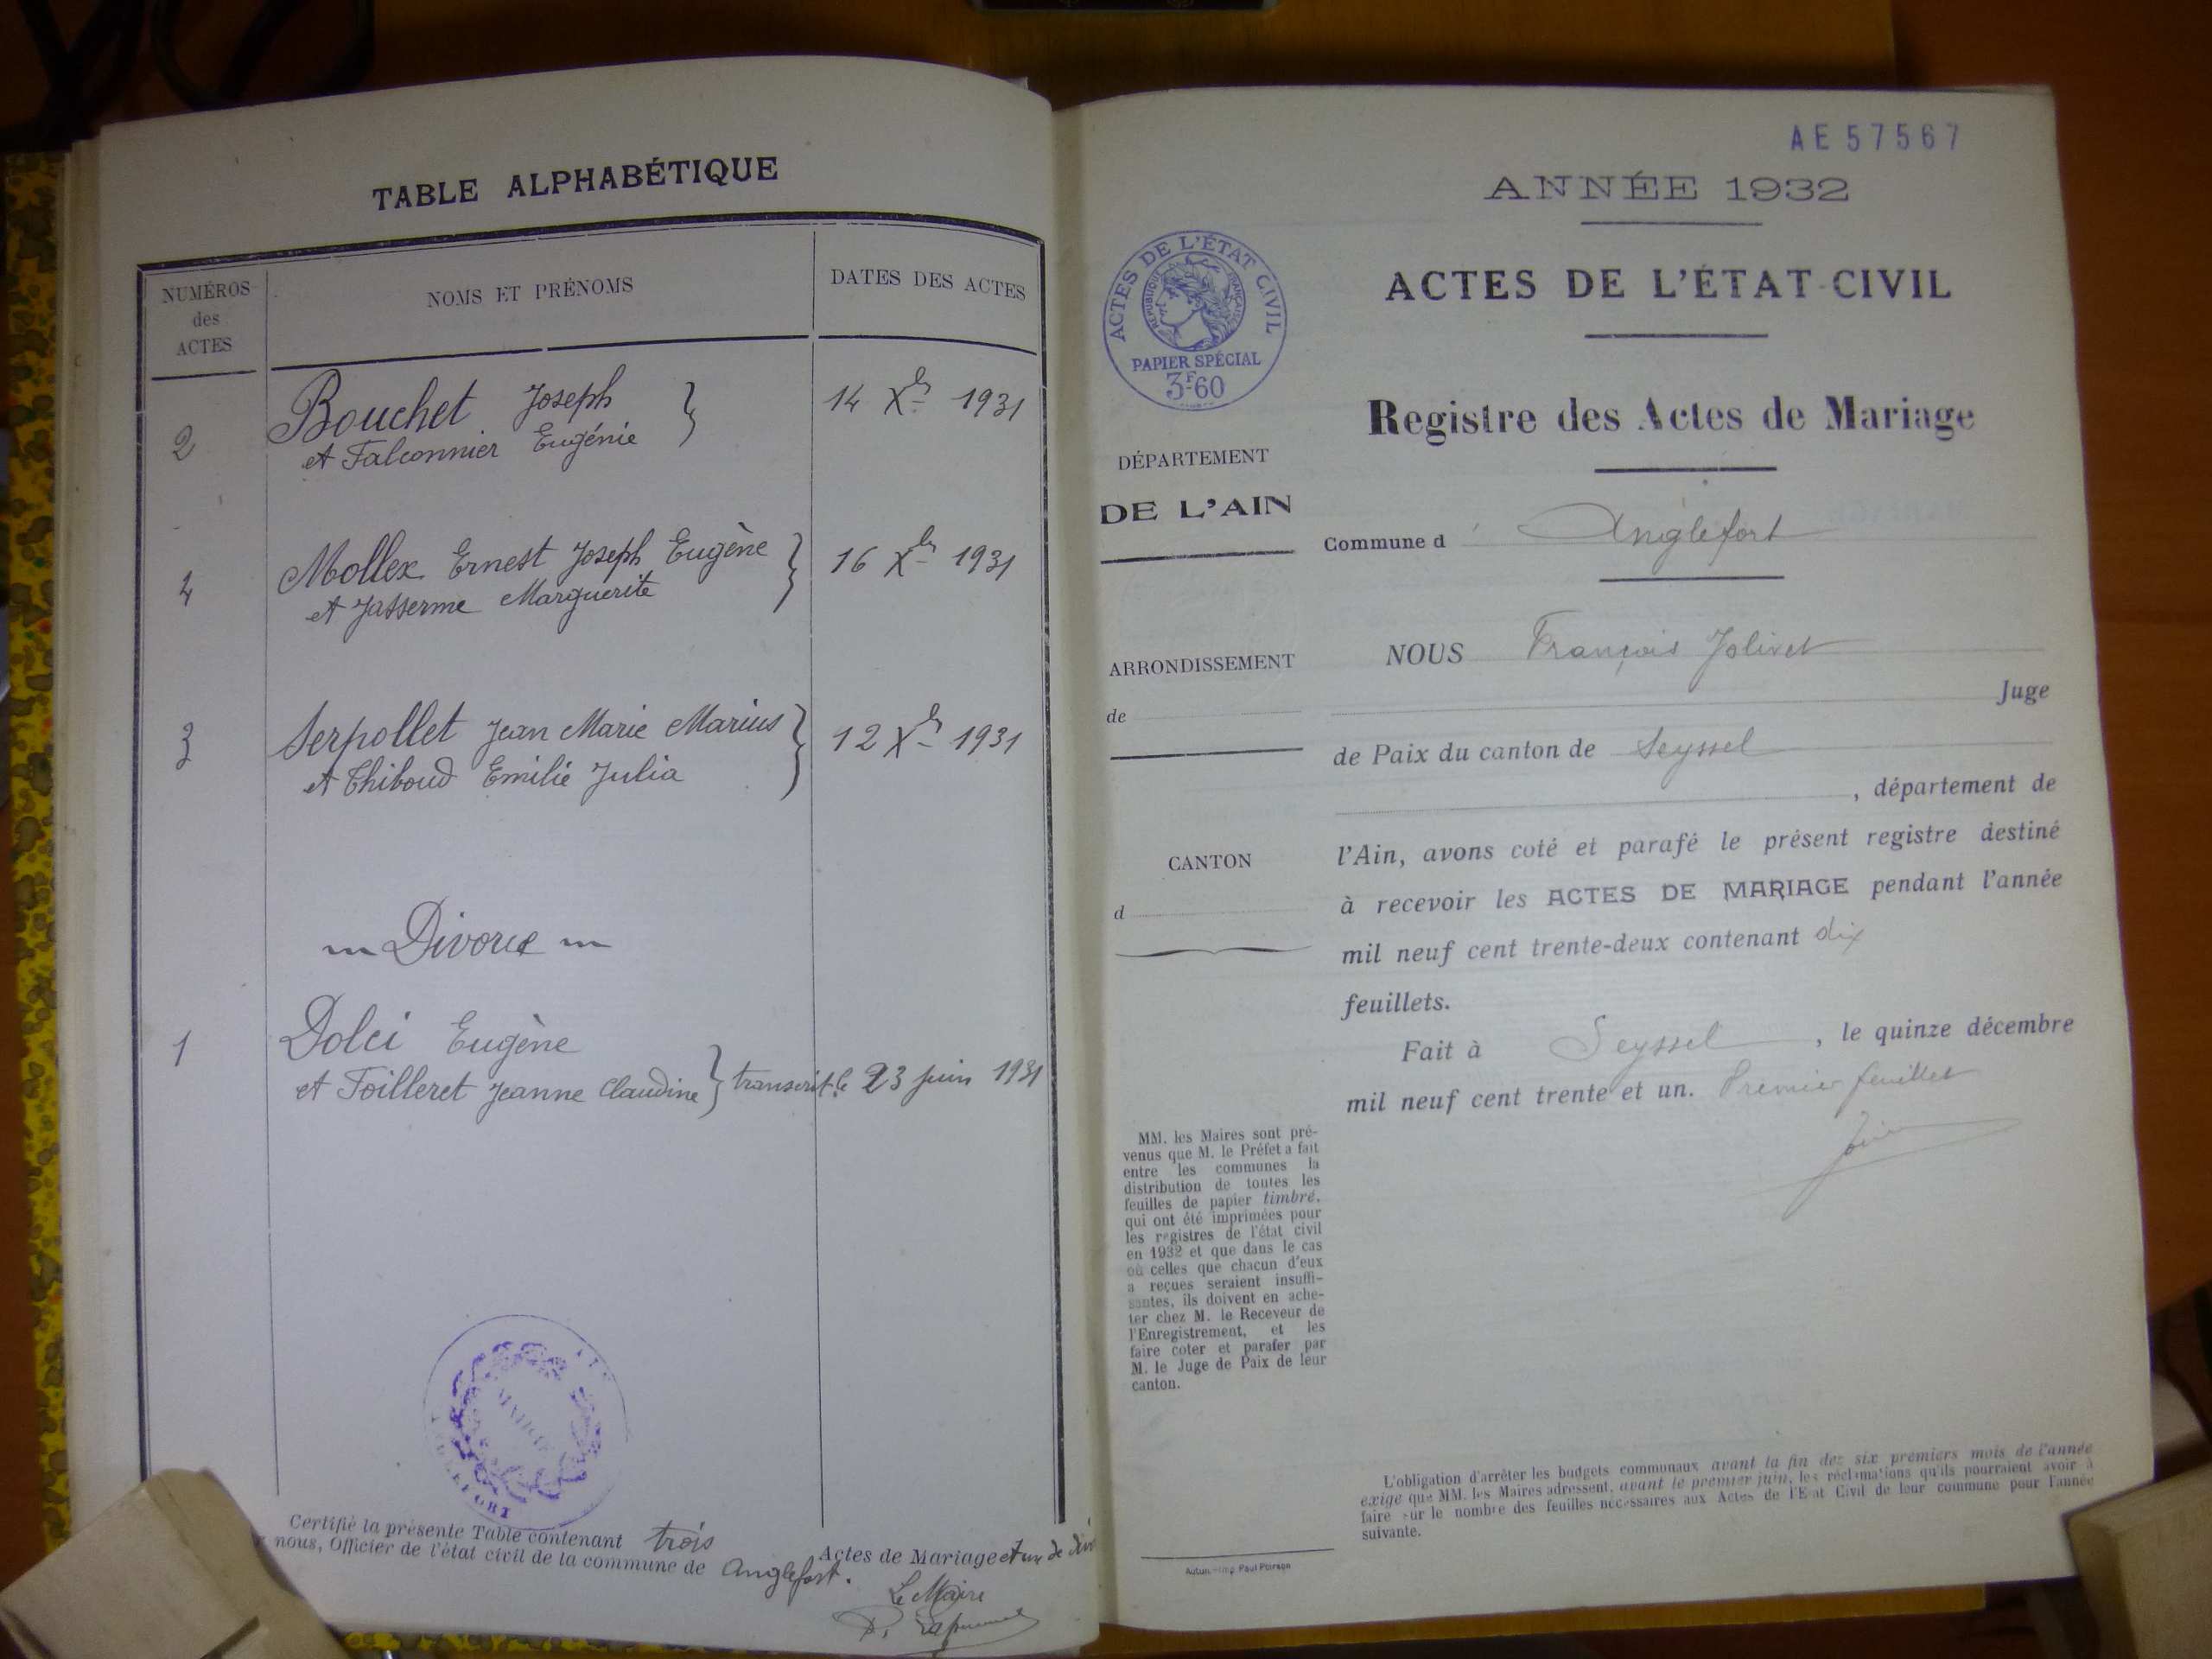 TABLE ALPHABÉTIQUE
NUMÉROS
des
ACTES
NOMS ET PRÉNOMS
DATES DES ACTES
2
Bouchet Joseph
et Falconnier Eugénie
14 Xbre 1931
4
Mollex Ernest Joseph Eugène
et Jasserme Marguerite
16 Xbre 1931
3
Serpollet Jean Marie Marius
et Thiboud Emilie Julia
12 Xbre 1931
Divorce
1
Dolci Eugène
et Foilleret Jeanne Claudine } transcrit le 23 juin 1931
MAIRIE
Certifié la présente Table contenant trois Actes de Mariage et un de
nous, Officier de l'état civil de la commune de Anglefort.
Le Maire
AE57567
ANNÉE 1932
ACTES DE L'ÉTAT CIVIL
RÉPUBLIQUE FRANÇAISE
PAPIER SPÉCIAL
3F60
ACTES DE L'ÉTAT-CIVIL
Registre des Actes de Mariage
DÉPARTEMENT
DE L'AIN
Commune d' Anglefort
ARRONDISSEMENT
de
CANTON
d
NOUS François Jolivet
Juge
de Paix du canton de Seyssel
, département de
l'Ain, avons coté et parafé le présent registre destiné
à recevoir les ACTES DE MARIAGE pendant l'année
mil neuf cent trente-deux contenant dix
feuillets.
Fait à Seyssel, le quinze décembre
mil neuf cent trente et un. Premier feuillet
MM. les Maires sont pré-
venus que M. le Préfet a fait
entre les communes la
distribution de toutes les
feuilles de papier timbré,
qui ont été imprimées pour
les registres de l'état civil
en 1932 et que dans le cas
où celles que chacun d'eux
a reçues seraient insuffi-
santes, ils doivent en ache-
ter chez M. le Receveur de
l'Enregistrement, et les
faire coter et parafer par
M. le Juge de Paix de leur
canton.
L'obligation d'arrêter les budgets communaux avant la fin des six premiers mois de l'année
exige que MM. les Maires adressent, avant le premier juin, les réclamations qu'ils pourraient avoir à
faire sur le nombre des feuilles nécessaires aux Actes de l'Etat Civil de leur commune pour l'année
suivante.
Autun. — Imp. Paul Poirson